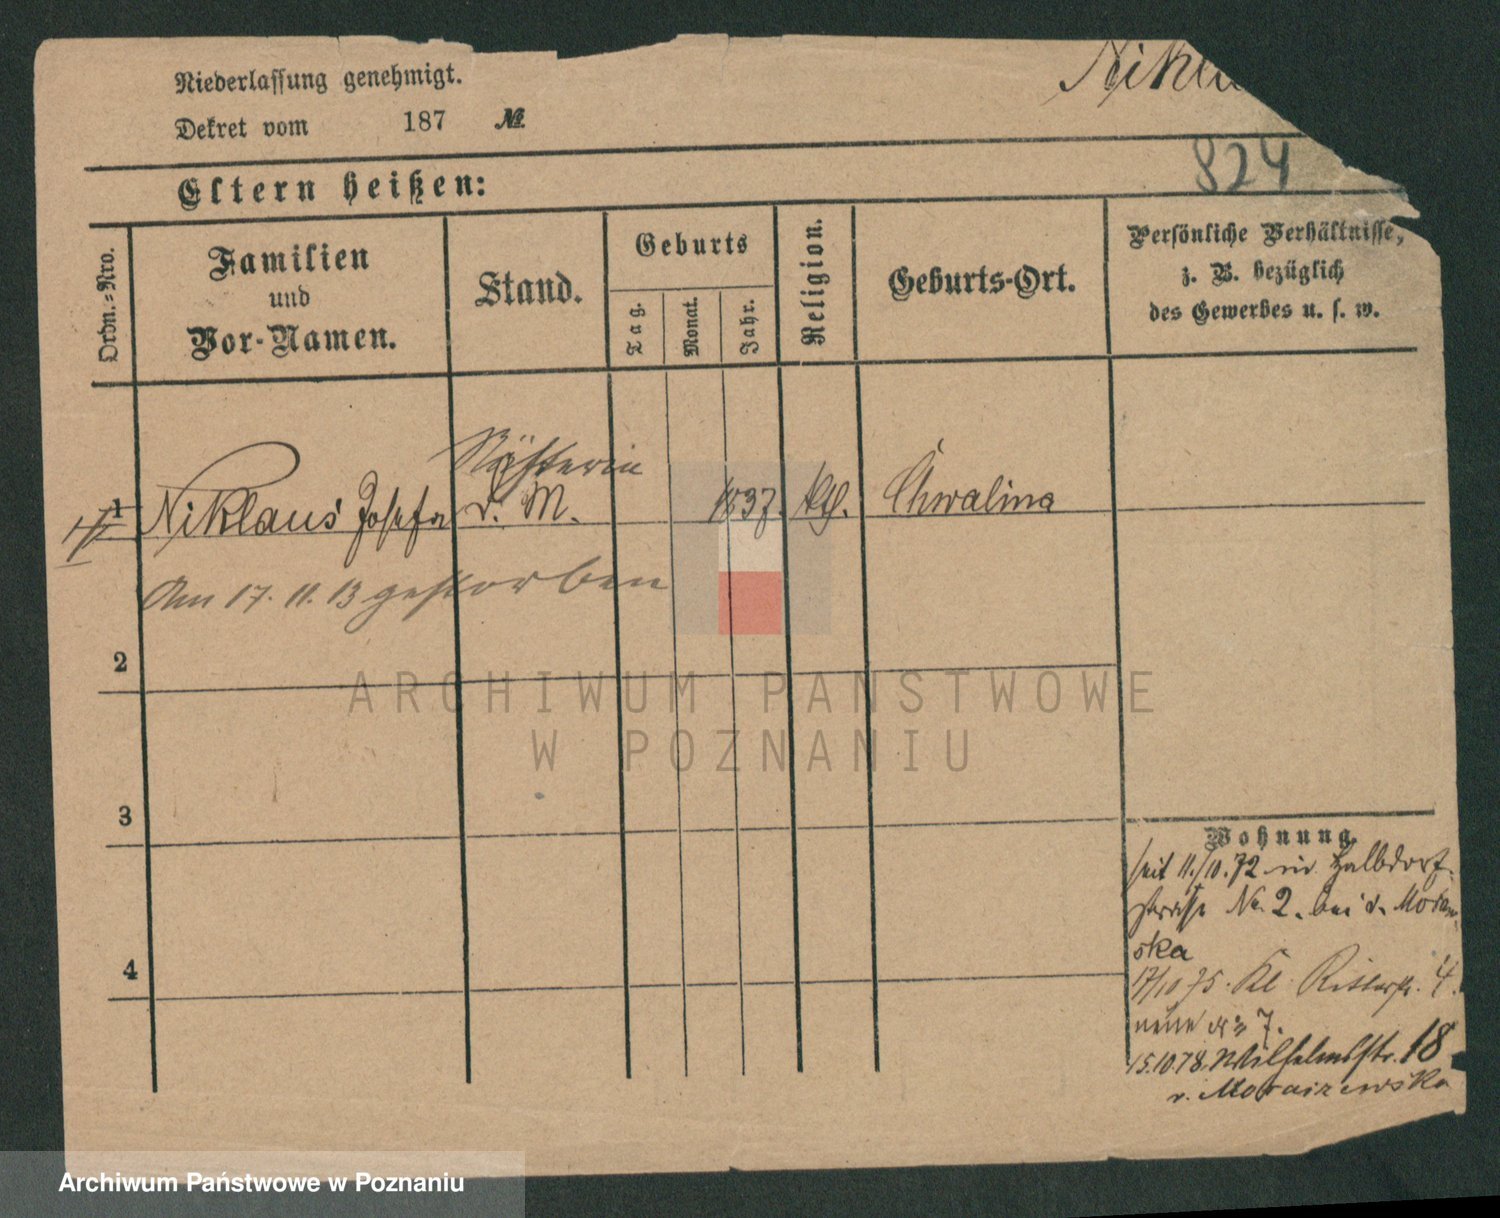 Niederlassung genehmigt.
Dekret vom 187 №
Niklau
824
Eltern heißen:
Ordn.=Nro.
Familien
und
Vor-Namen.
Stand.
Geburts
Tag.
Monat.
Jahr.
Religion.
Geburts-Ort.
Persönliche Verhältnisse,
z. B. bezüglich
des Gewerbes u. s. w.
1 Niklaus Josefa
d. M. 1837. kth. Chwalina
Am 17. 11. 13 gestorben
2
3
4
Wohnung
seit 11./10. 72 in Halbdorf-
strasse No. 2. bei d. Moraw
ska
17/10 75. Kl. Ritterstr. 4.
neue № 7.
15.10.78. Wilhelmstr. 18
v. Moraczewska
ARCHIWUM PAŃSTWOWE
W POZNANIU
Archiwum Państwowe w Poznaniu